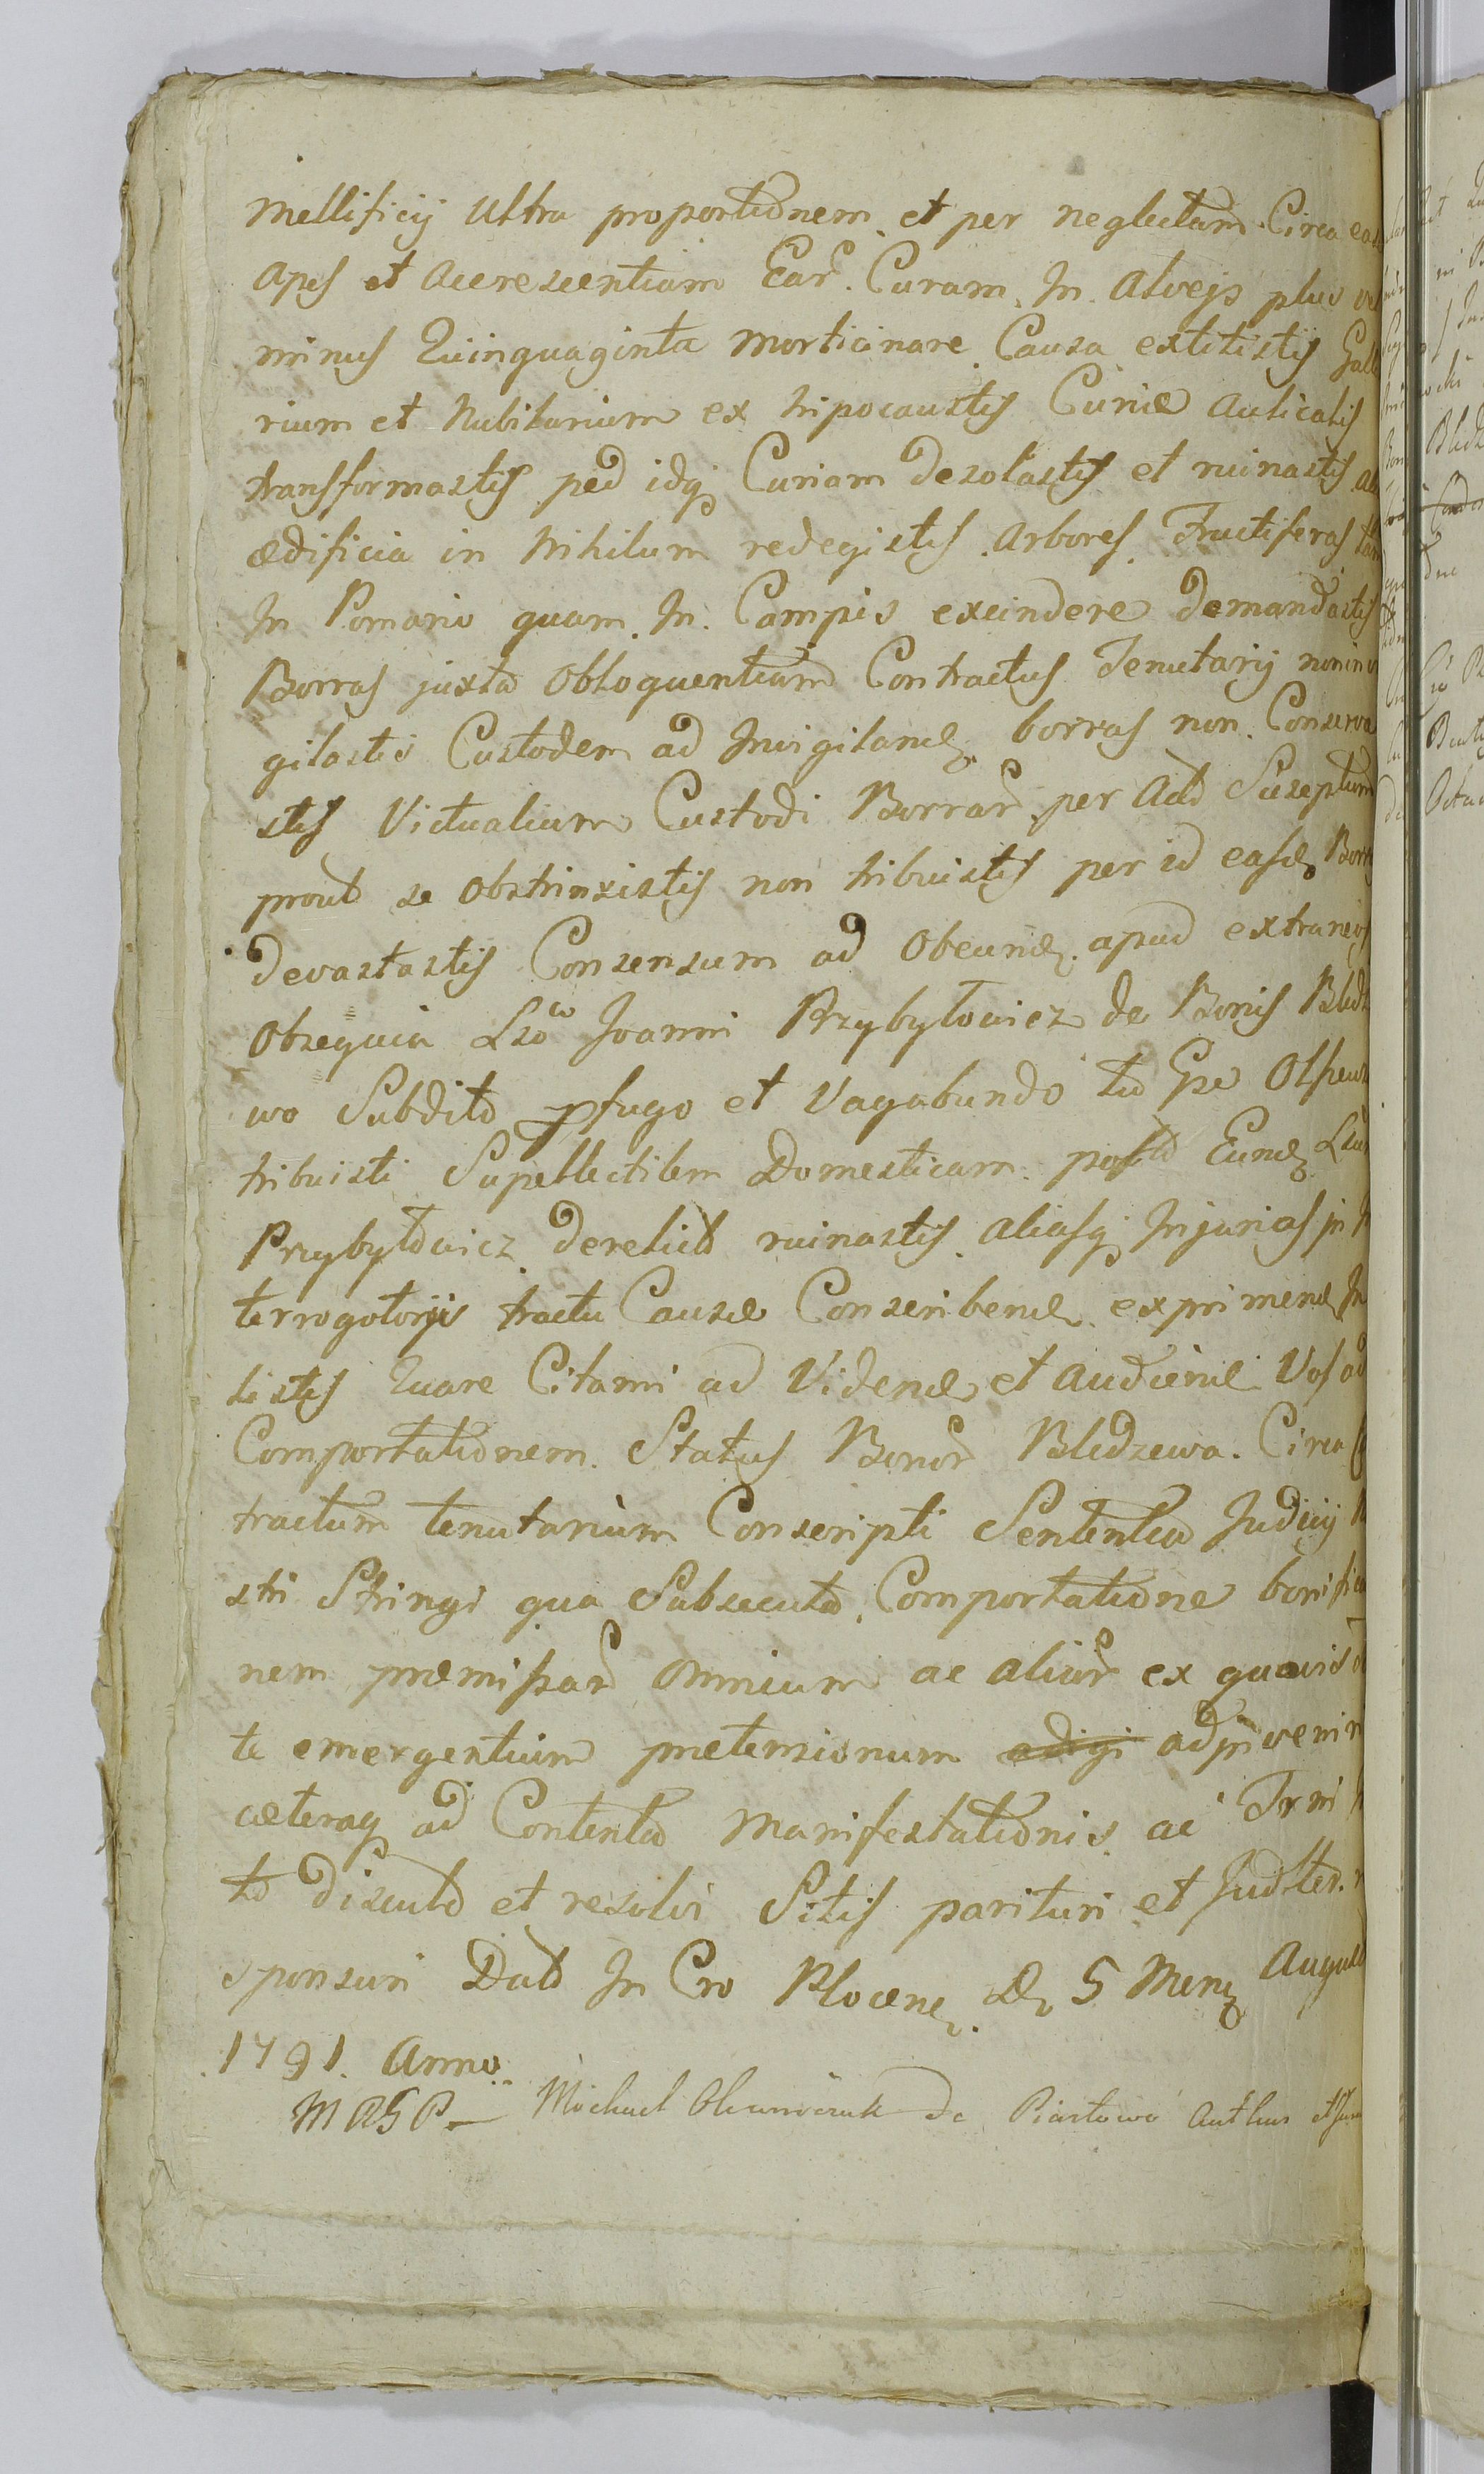 Mellificij Ultra proportionem et per neglectam Circa eas
apes et accrescentium Ear. Curam. In Alvejs plus vel
minus Quinquaginta morticinare Causa extitistis Galli
rium et Nubilarium ex hipocaustis Curiæ aulicalis
transformastis ped idq Curiam desolastis et ruinastis
ædificia in Nihilum redegistis Arbores Fructiferas tam
In Pomario quam In Campis excindere demandastis
Borras juxta Obloquentiam Contractus Tenutarij non in
gilastis Custodem ad Invigiland borras non Conserva
stis Victualium Custodi Borrar per Act Suseptum
prout se obstrinxistis non tribuistis per id easd Borr
devastastis Consensum ad Obeund apud extraneos
Obsequia Lso Joanni Przybyłowicz de Bonis Bledz
wo Subdito pfugo et Vagabundo tu Gse Olszews
tribuisti Supellectilem Domesticam post Eund Lsu
Przybyłowicz derelict ruinastis aliasq Injurias in In
terrogotorijs tractu Causæ Conscribend exprimend In
listis Quare Citami ad Videnđ et audiend Vos ad
Comportationem Status Bonor Bledzewa. Circa
tractum tenutarium Conscripti Sententia Judicij
stri Stringi qua Subsecuta Comportatione bonifica
nem præmissar omnium ac alior ex quavis
te emergentium prætensionum adigi adinveniri
cæteraq ad Contenta Manifestationis ac Trmi
to discut et resolvi Sitis parituri et Judlter r
sponsuri Dat In Cro Plocen D 5 Mens August
1791 Anno
MRSP Michael de Piastowo